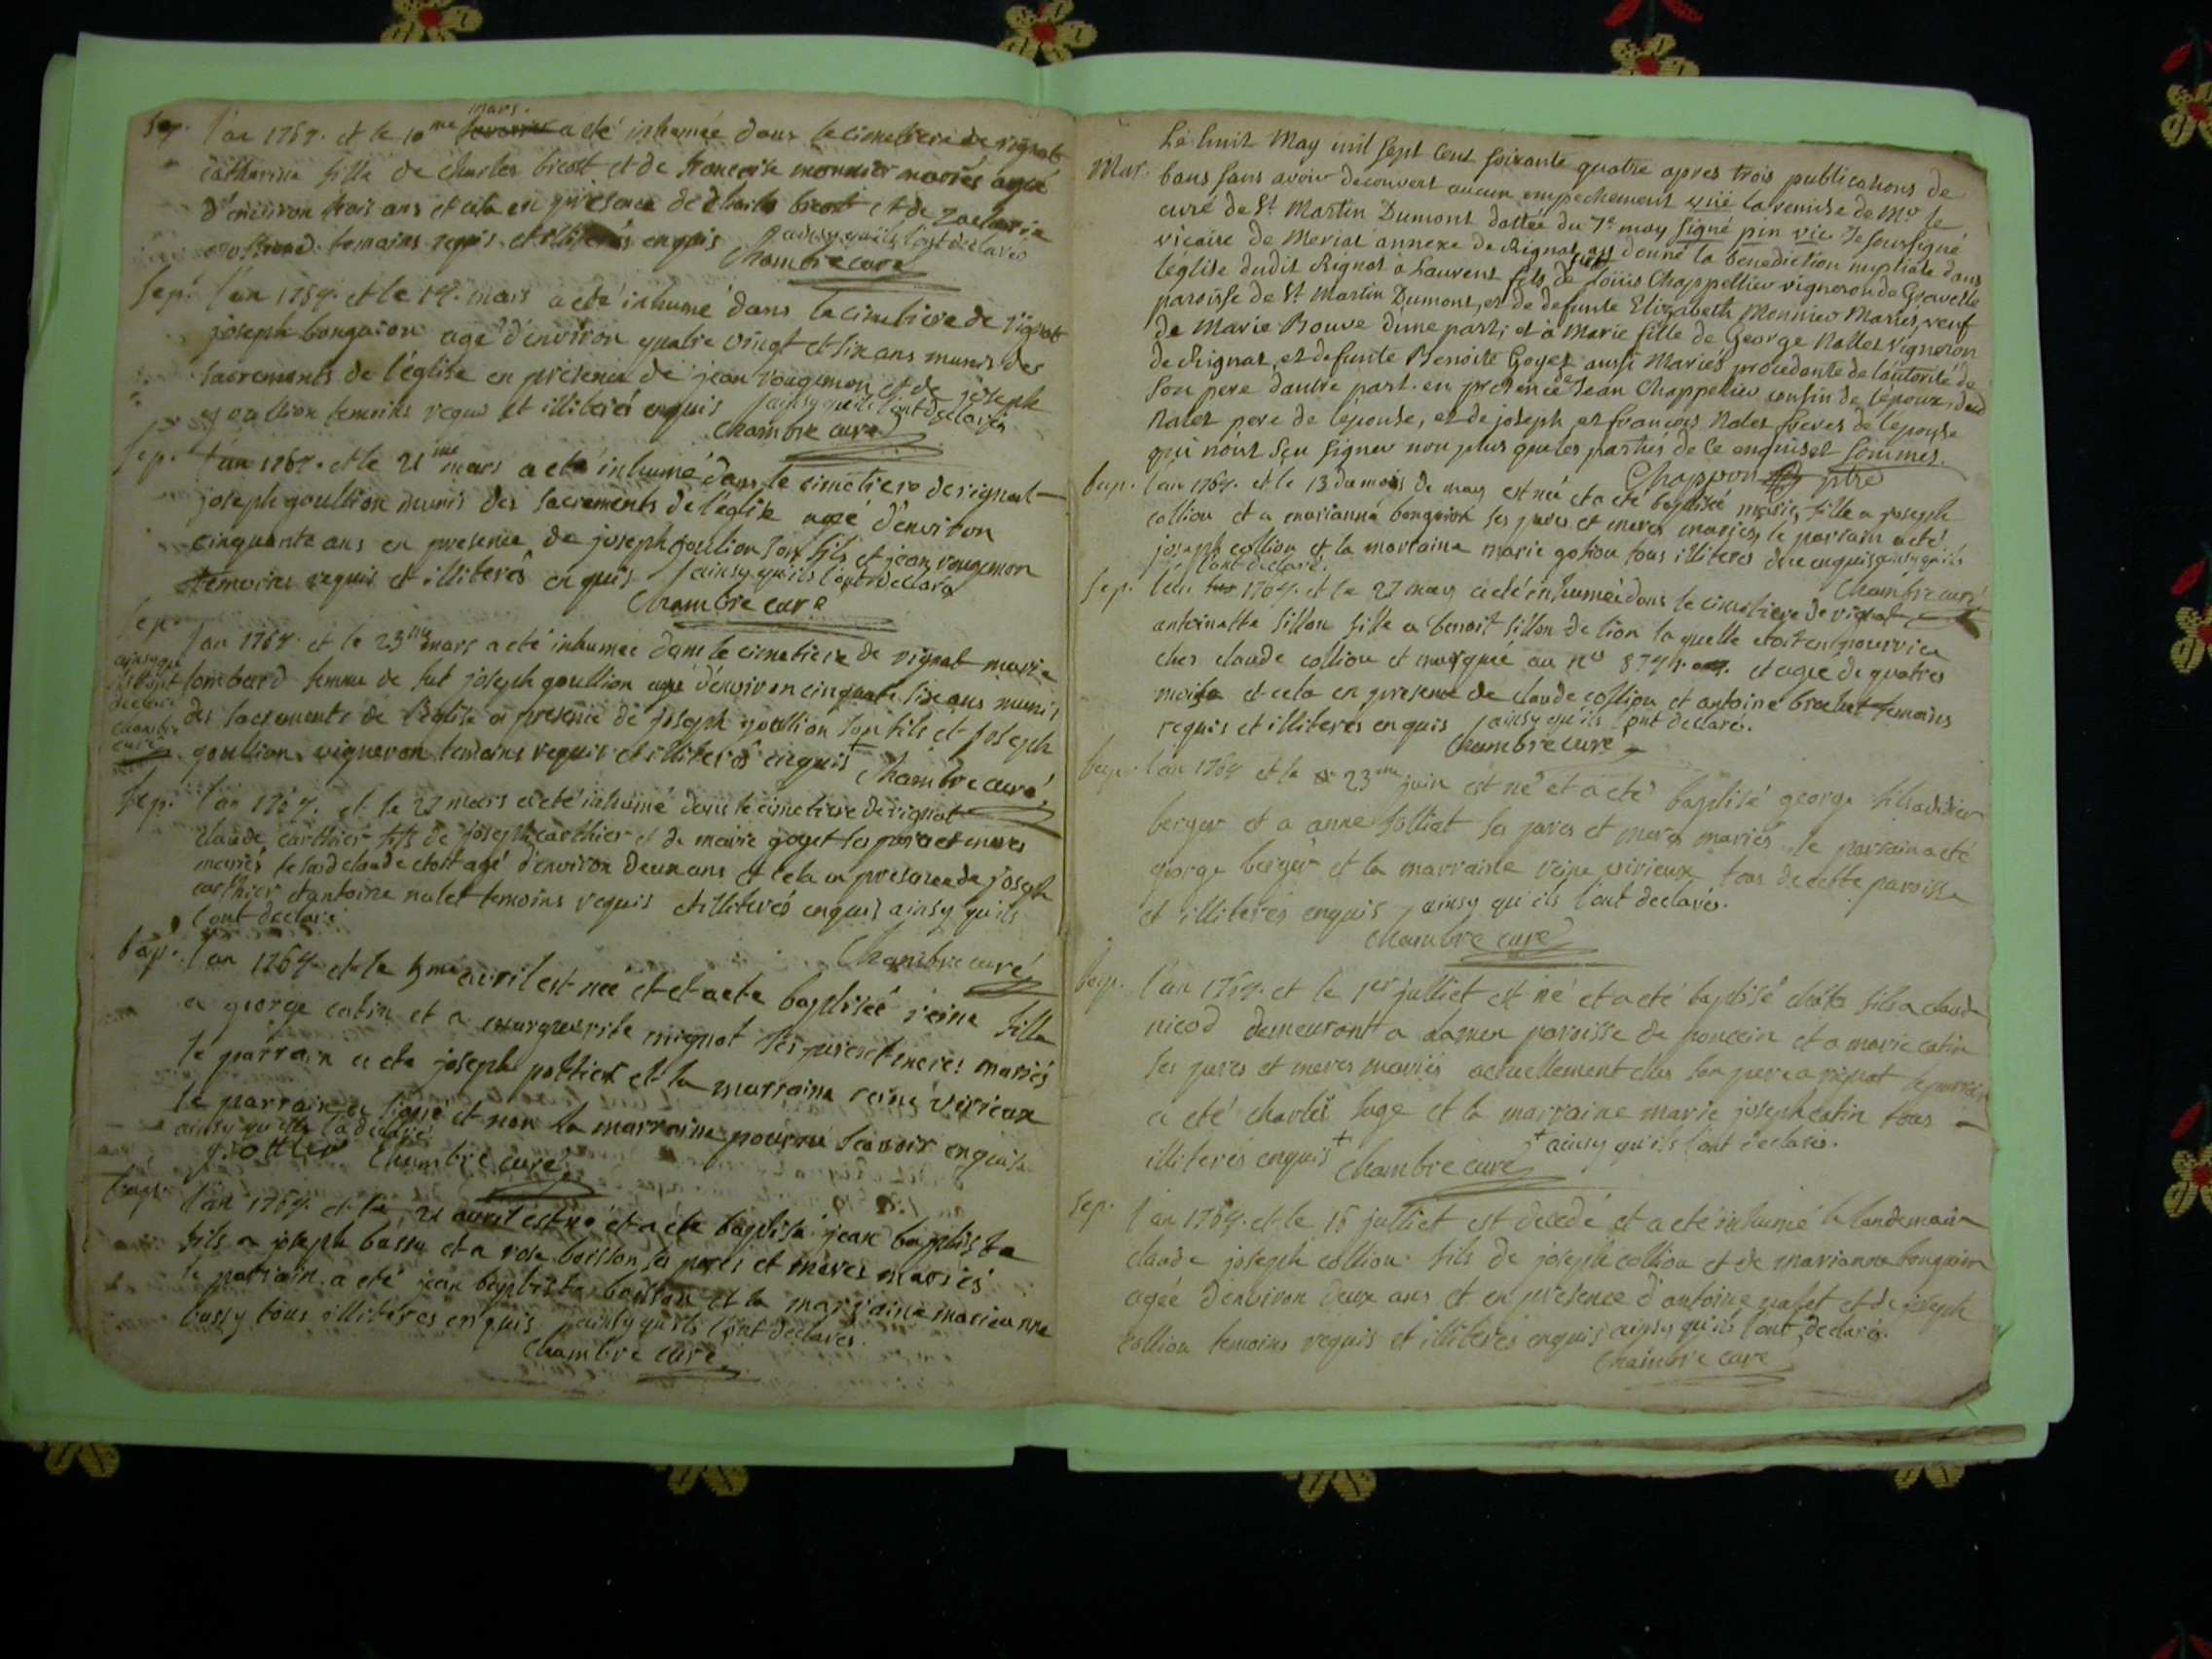 mars.
Sep. l'an 1764. et le 10me a eté inhumée dans le cimetiere de rignat
catherine fille de charles bicost et de francoise monnier mariés agée
d'environ trois ans et cela en presence de charles et de
temoins requis et illiterés enquis ainsy qu'ils l'ont declarés
Chambre curé
Sep. l'an 1764. et le 14. mars a eté inhumé dans le cimetiere de rignat
joseph bonguion agé d'environ quatre vingt et six ans munis des
sacrements de l'église en presence de jean rougemon et de joseph
goullion temoins requis et illiterés enquis ainsy qu'ils l'ont declarés
Chambre curé
Sep. l'an 1764. et le 21me mars a eté inhumé dans le cimetiere de rignat
joseph goullion munis des sacrements de l'église agé d'environ
cinquante ans en presence de joseph goulion son fils et jean rougemon
temoins requis et illiterés enquis ainsy qu'ils l'ont declaré
Chambre curé
Sep. l'an 1764. et le 23me mars a eté inhumée dans le cimetiere de rignat marie
lombard femme de fut joseph goullion agé d'environ cinquante six ans munis
des sacrements de l'église en presence de joseph goullion son fils et joseph
goullion vigneron temoins requis et illiterés enquis + Chambre curé
ainsy que
ils l'ont
declaré
chambre
curé
Sep. l'an 1764. et le 27 mars a eté inhumé dans le cimetiere de rignat
claude carthier fils de joseph carthier et de marie goyet ses pere et meres
mariés le susd claude etoit agé d'environ deux ans et cela en presence de joseph
carthier et antoine nalet temoins requis et illiterés enquis ainsy qu'ils
l'ont declaré
Chambre curé
bap. l'an 1764. et le 5me avril est née et et a eté baptisée reine fille
a george catin et a margueritte mignot ses peres et meres mariés
le parrain a eté joseph pottier et la marraine reine virieux
le parrain a signé et non la marraine pour ne scavoir enquise
ainsy qu'elle l'a declaré
pottier Chambre curé
bap. l'an 1764. et le 21 avril est né et a eté baptisé jean baptiste
fils a joseph bassy et a rose boisson ses peres et meres mariés
le parrain a eté jean baptiste boisson et la marraine marieanne
bussy tous illiteres enquis ainsy qu'ils l'ont declarés.
Chambre curé
Mar. Le huit May mil sept Cent soixante quatre apres trois publications de
bans sans avoir decouvert aucun empechement vuë la remise de Mr le
curé de St Martin Dumont dattée du 7e may signé pin vic. Je soussigné
vicaire de Meriat annexe de Rignat ay donné la benediction nuptiale dans
l'église dudit Rignat à Laurent fils de Loüis Chappellier vigneron de Gravelle
paroisse de St Martin Dumont, et de defunte Elizabeth Monnier Mariés, veuf
de Marie Bouve d'une part; et à Marie fille de George Nallet vigneron
de Rignat, et defunte Benoite Goyet aussi Mariés procedante de l'autorité de
son pere d'autre part. en presence de Jean Chappelier cousin de l'époux, dud
Nalet pere de l'epouse, et de joseph et françois Nalet freres de l'épouse
qui n'ont sçu signer non plus que les parties de ce enquis et sommés.
Chappon ptre
bap. l'an 1764. et le 13 du mois de may est née et a eté baptisée marie, fille a joseph
collion et a marianne bonguion ses peres et meres mariés, le parrain a eté
joseph collion et la marraine marie gohou tous illiteres de ce enquis ainsy qu'ils
l'ont declaré.
Chambre curé
Sep. l'an 1764. et le 27 may a eté inhumée dans le cimetiere de rignat
antoinette sillon fille a benoit sillon de lion laquelle etoit en nourrice
ches claude collion et marquée au no et agée de quatres
moise et cela en presence de claude collion et antoine brochet temoins
requis et illiterés enquis ainsy qu'ils l'ont declaré.
Chambre curé
bap. l'an 1764 et le 23me juin est né et a eté baptisé george fils a didier
berger et a anne folliet sa peres et meres mariés le parrain a eté
george berger et la marraine reine virieux tous de cette paroisse
et illiterés enquis ainsy qu'ils l'ont declarés.
Chambre curé
bap. l'an 1764. et le 1er julliet est né et a eté baptisé fils a claude
nicod demeurant a paroisse de poncein et a marie catin
ses peres et meres mariés actuellement ches son pere a rignat le parrain
a eté charles luge et la marraine marie joseph catin tous
illiterés enquis + Chambre curé + ainsy qu'ils l'ont declarés.
Sep. l'an 1764. et le 15 julliet est decedé et a eté inhumé le landemain
claude joseph collion fils de joseph collion et de marianne bonguion
agée d'environ deux ans et en presence d'antoine nalet et de joseph
collion temoins requis et illiterés enquis ainsy qu'ils l'ont declarés.
Chambre curé